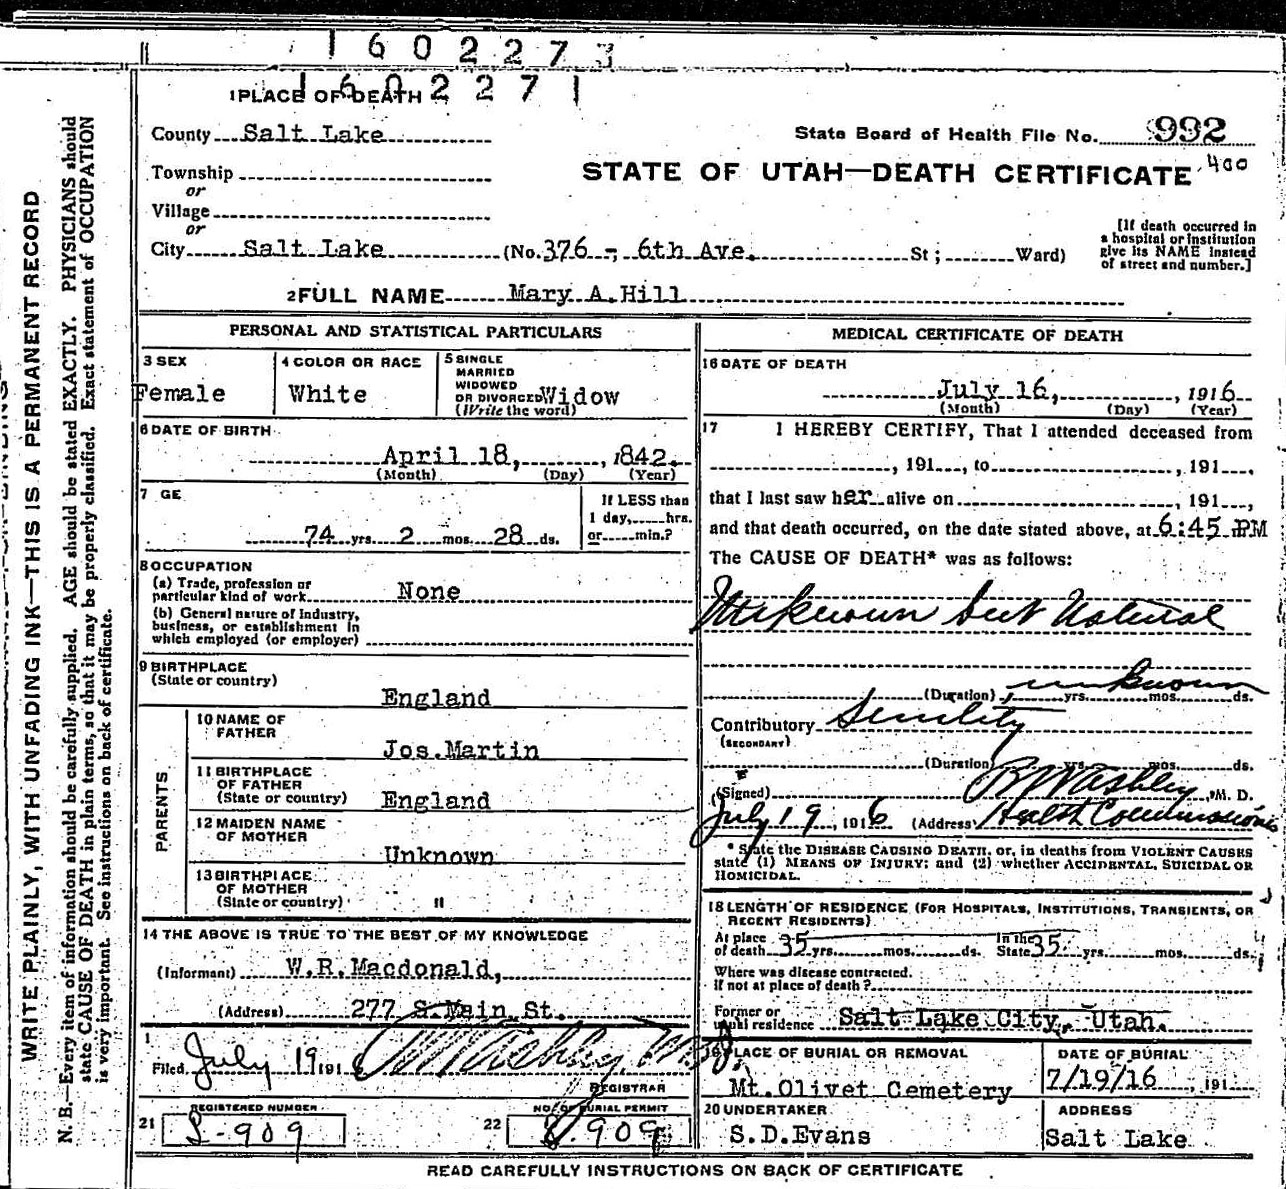 1602273
1602271
1 PLACE OF DEATH
County Salt Lake
State Board of Health File No. 992
Township
or
Village
or
STATE OF UTAH—DEATH CERTIFICATE 400
City Salt Lake (No. 376 - 6th Ave. St; Ward)
[If death occurred in
a hospital or institution
give its NAME instead
of street and number.]
2 FULL NAME Mary A.Hill
PERSONAL AND STATISTICAL PARTICULARS
3 SEX
Female
4 COLOR OR RACE
White
5 SINGLE
MARRIED
WIDOWED
OR DIVORCED Widow
(Write the word)
6 DATE OF BIRTH
April 18, , 1842.
(Month) (Day) (Year)
7 GE
74 yrs. 2 mos. 28 ds.
If LESS than
1 day, hrs.
or min.?
8 OCCUPATION
(a) Trade, profession or
particular kind of work None
(b) General nature of Industry,
business, or establishment in
which employed (or employer)
9 BIRTHPLACE
(State or country)
England
PARENTS
10 NAME OF
FATHER
Jos.Martin
11 BIRTHPLACE
OF FATHER
(State or country) England
12 MAIDEN NAME
OF MOTHER
Unknown
13 BIRTHPLACE
OF MOTHER
(State or country) "
14 THE ABOVE IS TRUE TO THE BEST OF MY KNOWLEDGE
(Informant) W.R.Macdonald,
(Address) 277 S.Main St.
Filed July 19 191
REGISTRAR
21
REGISTERED NUMBER
S-909
22
NO. OF BURIAL PERMIT
S.909
MEDICAL CERTIFICATE OF DEATH
16 DATE OF DEATH
July 16, , 1916
(Month) (Day) (Year)
17 I HEREBY CERTIFY, That I attended deceased from
, 191 , to , 191 ,
that I last saw her alive on , 191 ,
and that death occurred, on the date stated above, at 6:45 PM
The CAUSE OF DEATH* was as follows:
Unknown but Natural
(Duration) unknown yrs. mos. ds.
Contributory Senility
(SECONDARY)
(Duration) yrs. mos. ds.
(Signed) , M. D.
July 19 , 1916 (Address) Health Commissioner
* State the DISEASE CAUSING DEATH, or, in deaths from VIOLENT CAUSES
state (1) MEANS OF INJURY; and (2) whether ACCIDENTAL, SUICIDAL OR
HOMICIDAL.
18 LENGTH OF RESIDENCE (FOR HOSPITALS, INSTITUTIONS, TRANSIENTS, OR
RECENT RESIDENTS)
At place
of death 35 yrs. mos. ds.
In the
State 35 yrs. mos. ds.
Where was disease contracted.
if not at place of death?
Former or
usual residence Salt Lake City, Utah.
19 PLACE OF BURIAL OR REMOVAL
Mt.Olivet Cemetery
DATE OF BURIAL
7/19/16 , 191
20 UNDERTAKER
S.D.Evans
ADDRESS
Salt Lake
READ CAREFULLY INSTRUCTIONS ON BACK OF CERTIFICATE
WRITE PLAINLY, WITH UNFADING INK—THIS IS A PERMANENT RECORD
N. B.—Every item of information should be carefully supplied. AGE should be stated EXACTLY. PHYSICIANS should
state CAUSE OF DEATH in plain terms, so that it may be properly classified. Exact statement of OCCUPATION
is very important. See instructions on back of certificate.